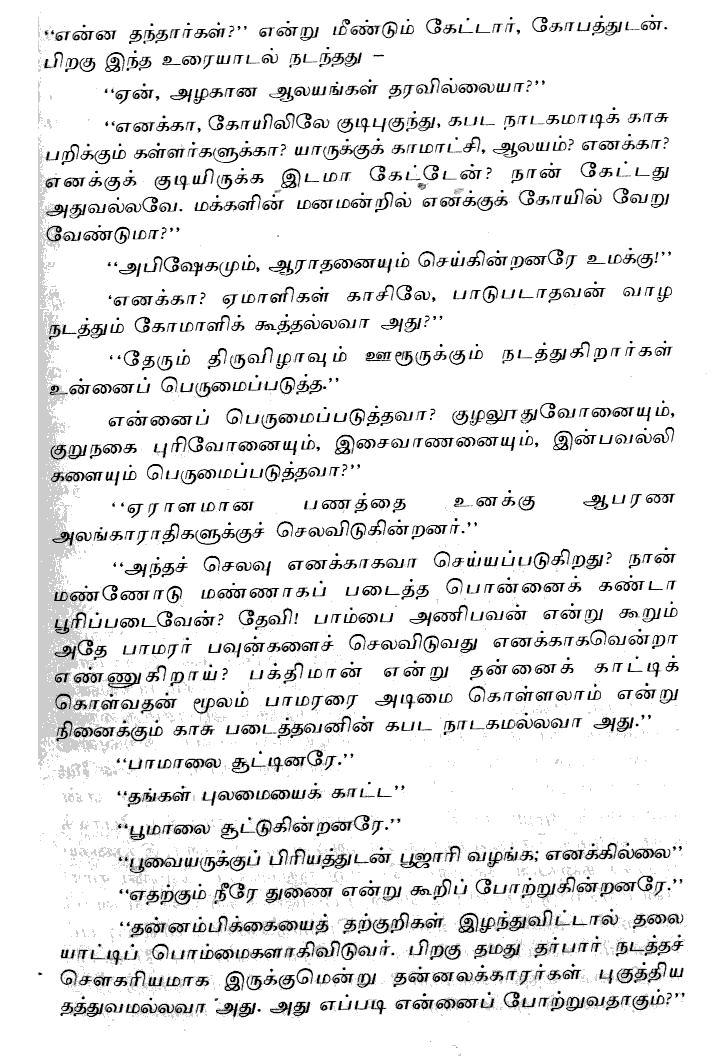 ‘‘என்ன தந்தார்கள்?’’ என்று மீண்டும் கேட்டார், கோபத்துடன்.
பிறகு இந்த உரையாடல் நடந்தது –
‘‘ஏன், அழகான ஆலயங்கள் தரவில்லையா?’’
‘‘எனக்கா, கோயிலிலே குடிபுகுந்து, கபட நாடகமாடிக் காசு
பறிக்கும் கள்ளர்களுக்கா? யாருக்குக் காமாட்சி, ஆலயம்? எனக்கா?
எனக்குக் குடியிருக்க இடமா கேட்டேன்? நான் கேட்டது
அதுவல்லவே. மக்களின் மனமன்றில் எனக்குக் கோயில் வேறு
வேண்டுமா?’’
‘‘அபிஷேகமும், ஆராதனையும் செய்கின்றனரே உமக்கு!’’
‘எனக்கா? ஏமாளிகள் காசிலே, பாடுபடாதவன் வாழ
நடத்தும் கோமாளிக் கூத்தல்லவா அது?’’
‘‘தேரும் திருவிழாவும் ஊரூருக்கும் நடத்துகிறார்கள்
உன்னைப் பெருமைப்படுத்த.’’
என்னைப் பெருமைப்படுத்தவா? குழலூதுவோனையும்,
குறுநகை புரிவோனையும், இசைவாணனையும், இன்பவல்லி
களையும் பெருமைப்படுத்தவா?’’
‘‘ஏராளமான பணத்தை உனக்கு ஆபரண
அலங்காராதிகளுக்குச் செலவிடுகின்றனர்.’’
‘‘அந்தச் செலவு எனக்காகவா செய்யப்படுகிறது? நான்
மண்ணோடு மண்ணாகப் படைத்த பொன்னைக் கண்டா
பூரிப்படைவேன்? தேவி! பாம்பை அணிபவன் என்று கூறும்
அதே பாமரர் பவுன்களைச் செலவிடுவது எனக்காகவென்றா
எண்ணுகிறாய்? பக்திமான் என்று தன்னைக் காட்டிக்
கொள்வதன் மூலம் பாமரரை அடிமை கொள்ளலாம் என்று
நினைக்கும் காசு படைத்தவனின் கபட நாடகமல்லவா அது.’’
‘‘பாமாலை சூட்டினரே.’’
‘‘தங்கள் புலமையைக் காட்ட’’
‘‘பூமாலை சூட்டுகின்றனரே.’’
‘‘பூவையருக்குப் பிரியத்துடன் பூஜாரி வழங்க; எனக்கில்லை’’
‘‘எதற்கும் நீரே துணை என்று கூறிப் போற்றுகின்றனரே.’’
‘‘தன்னம்பிக்கையைத் தற்குறிகள் இழந்துவிட்டால் தலை
யாட்டிப் பொம்மைகளாகிவிடுவர். பிறகு தமது தர்பார் நடத்தச்
சௌகரியமாக இருக்குமென்று தன்னலக்காரர்கள் புகுத்திய
தத்துவமல்லவா அது. அது எப்படி என்னைப் போற்றுவதாகும்?’’